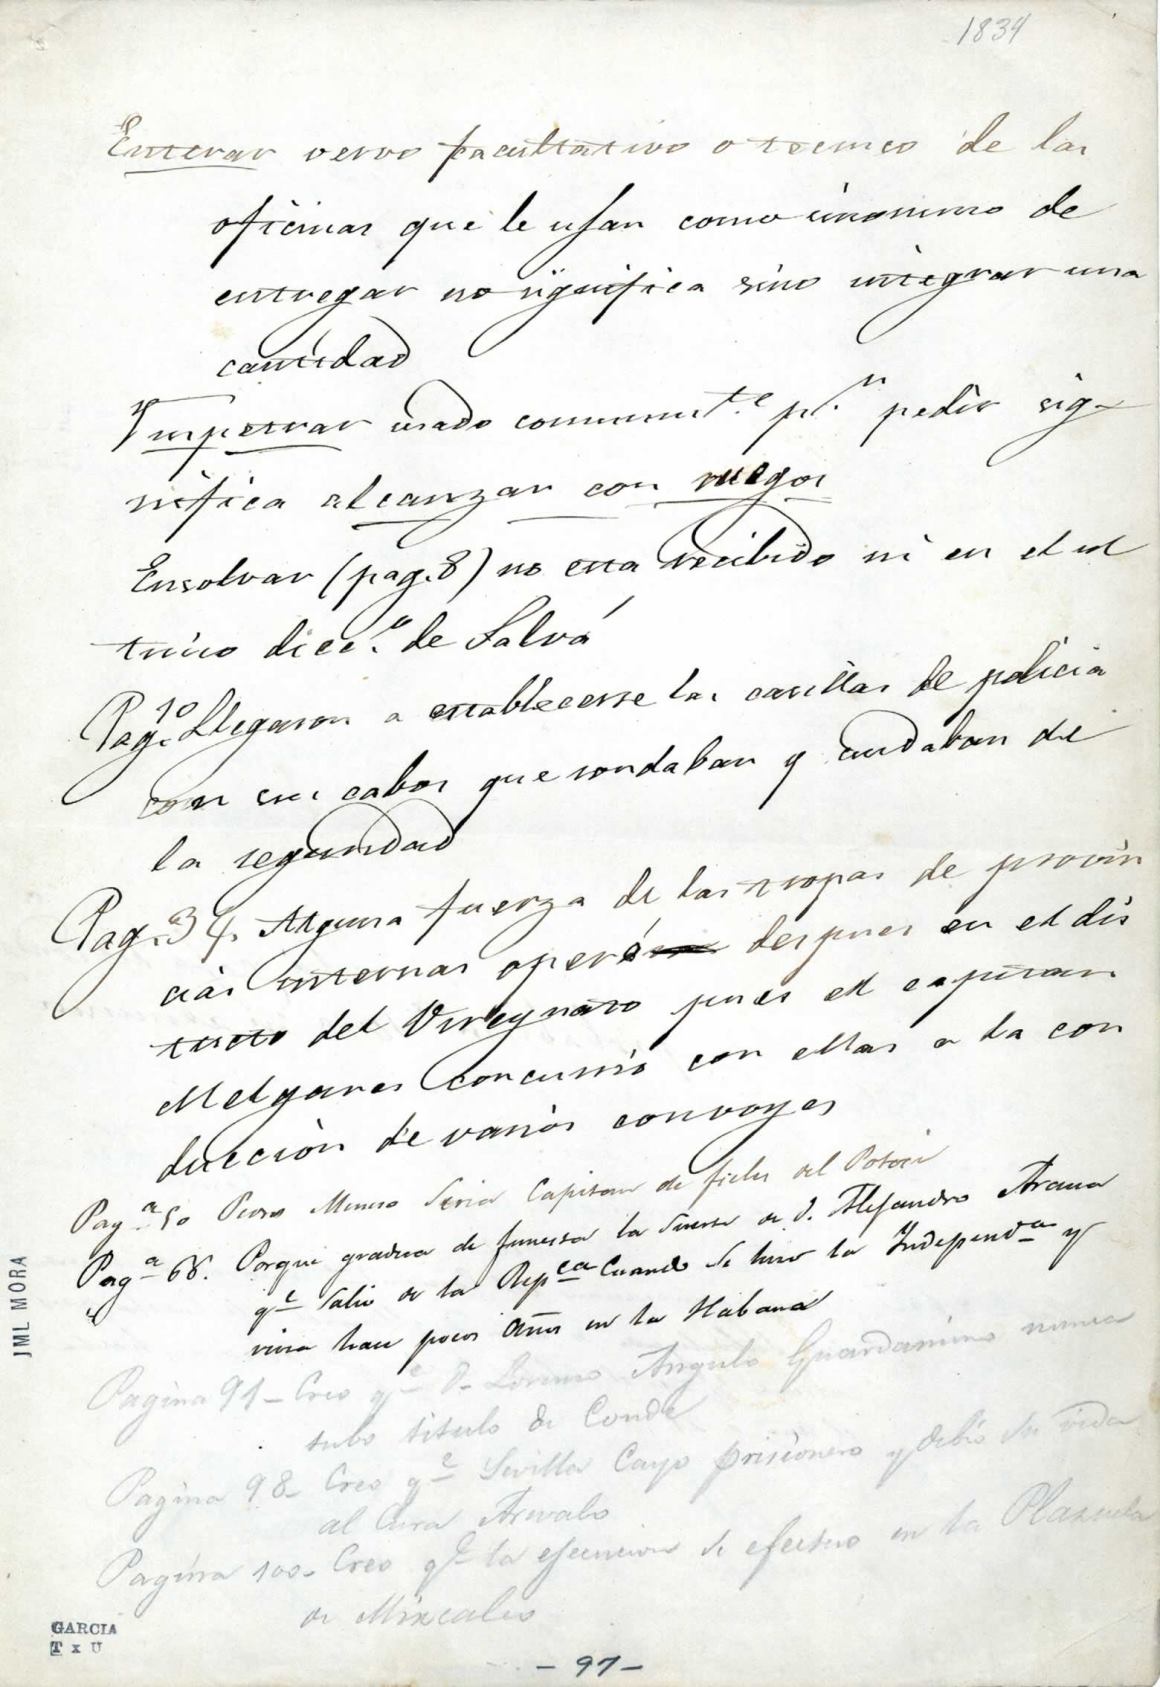 1834
Enterar vervo facultativo o tecnico de las
oficinas que le usan como sinonimo de
entregar no significa sino integrar una
cantidad
Impetrar usado communmt.e p.r pedir sig-
nifica alcanzar con ruegos
Ensolvar (pag. 8) no esta recibido ni en el ul
timo dicc.o de Salvá
Pag. 10 Llegaron a establecerse las casillas de policia
con sus cabos que rondaban y cuidaban de
la seguridad
Pag.a 34. Alguna fuerza de las tropas de provin
cias internas operó despues en el dis
tricto del Vireynato pues el capitan
Melgares concurrio con ellas a la con
duccion de varios convoyes
Pag.a 50 Pedro Meneso Seria Capitan de fieles del Potosi
Pag.a 66. Porque gradua de funesta la suerte de D. Alejandro Arana
q.e salio de la Rep.ca Cuando se hizo la Independ.a y
vivia hace pocos Años en la Habana
Pagina 91 - Creo q.e D. Lorenzo Angulo Guardamino nunca
tubo titulo de Conde
Pagina 98 - Creo q.e Sevilla Cayo prisionero y debio su vida
al Cura Arevalo
Pagina 100 - Creo q.e la ejecucion se efectuo en la Plazuela
de Mixcalco
JML MORA
GARCIA
T x U
- 97 -